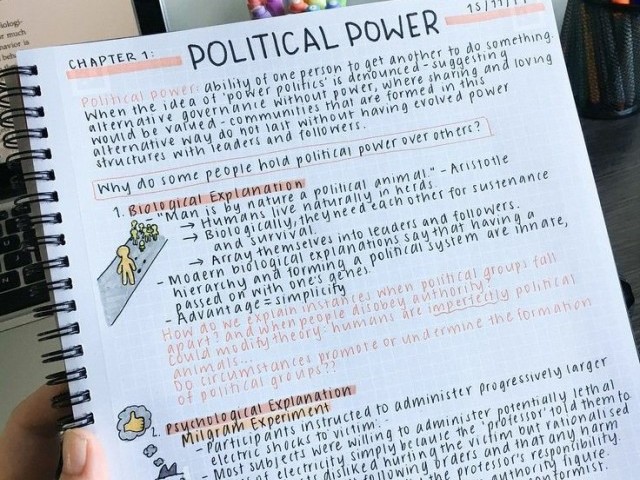 CHAPTER 1:
POLITICAL POWER
15/11/17
Political power: ability of one person to get another to do something.
When the idea of 'power politics' is denounced - suggesting
alternative governance without power, where sharing and loving
would be valued - communities that are formed in this
alternative way do not last without having evolved power
structures with leaders and followers.
Why do some people hold political power over others?
1. Biological Explanation
- "Man is by nature a political animal." - Aristotle
→ Humans live naturally in herds.
→ Biologically, they need each other for sustenance
and survival.
→ Array themselves into leaders and followers.
- Modern biological explanations say that having a
hierarchy and forming a political system are innate,
passed on with one's genes.
- Advantage = simplicity
How do we explain instances when political groups fall
apart? and when people disobey authority?
could modify theory: humans are imperfectly political
animals...
Do circumstances promote or undermine the formation
of political groups??
2. Psychological Explanation
Milgram Experiment
- Participants instructed to administer progressively larger
electric shocks to victim.
- Most subjects were willing to administer potentially lethal
of electricity simply because the 'professor' told them to
disliked hurting the victim but rationalised
following orders and that any harm
the professor's responsibility.
authority figure.
conformist.